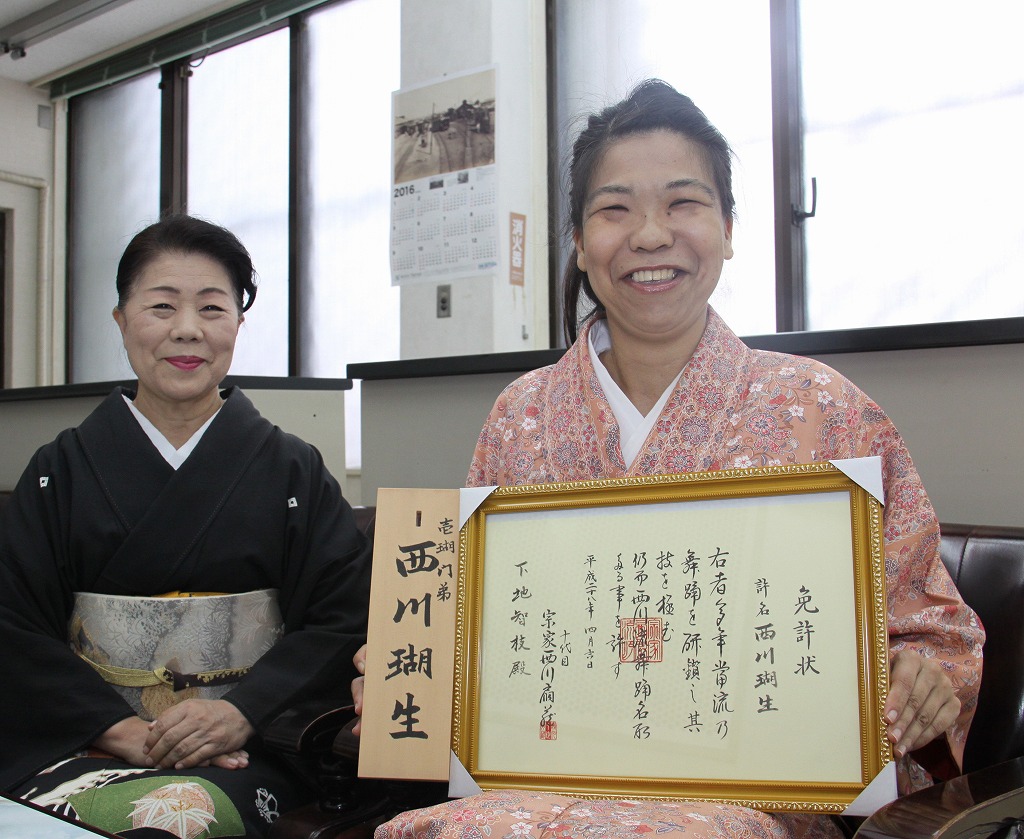 2016
消火器
壱瑚門弟
西川瑚生
免許状
許名 西川瑚生
右者多年当流乃
舞踊を研鑽し其
技を極む
仍而西川流舞踊名取
たる事を許す
平成二十八年四月六日
十代目
宗家西川扇藏
下地智枝殿